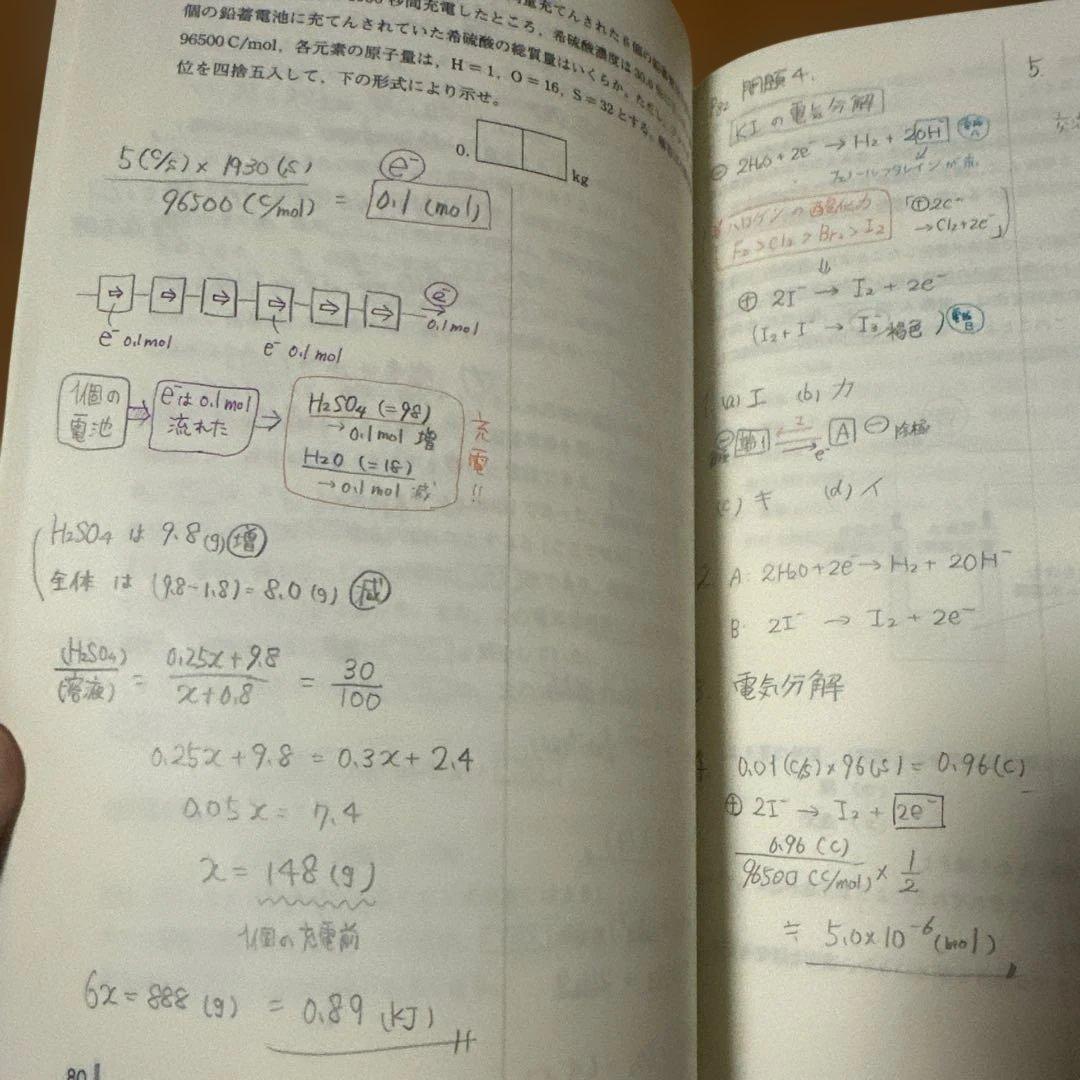 秒間充電したところ，希硫酸濃度は30.0
個の鉛蓄電池に充てんされていた希硫酸の総質量はいくらか。ただし，
96500 C/mol，各元素の原子量は，H＝1，O＝16，S＝32とする。
位を四捨五入して，下の形式により示せ。
0.
kg
5(C/s)×1930(s)
96500(C/mol)
=
e⁻
0.1(mol)
e⁻
0.1mol
e⁻ 0.1mol
e⁻ 0.1mol
1個の
電池
e⁻は0.1mol
流れた
H₂SO₄(=98)
→0.1mol増
H₂O(=18)
→0.1mol減
充
電
!!
H₂SO₄は9.8(g)増
全体は(9.8-1.8)=8.0(g)減
(H₂SO₄)
(溶液)
= 0.25x+9.8
x+0.8
= 30
100
0.25x+9.8=0.3x+2.4
0.05x=7.4
x=148(g)
1個の充電前
6x=888(g)
=0.89(KJ)
80
問題4.
KIの電気分解
⊖ 2H₂O+2e⁻→H₂+2OH⁻
フェノールフタレインが赤
ハロゲンの酸化力
F₂>Cl₂>Br₂>I₂
「⊕2Cl⁻
→Cl₂+2e⁻」
⇓
⊕ 2I⁻→I₂+2e⁻
(I₂+I⁻→I₃⁻褐色)
(a)エ (b)カ
I
e⁻
A
⊖陰極
(c)キ (d)イ
2. A: 2H₂O+2e⁻→H₂+2OH⁻
B: 2I⁻→I₂+2e⁻
電気分解
0.01(C/s)×96(s)=0.96(C)
⊕ 2I⁻→I₂+2e⁻
0.96(C)
96500(C/mol)
×1/2
≒5.0×10⁻⁶(mol)
5